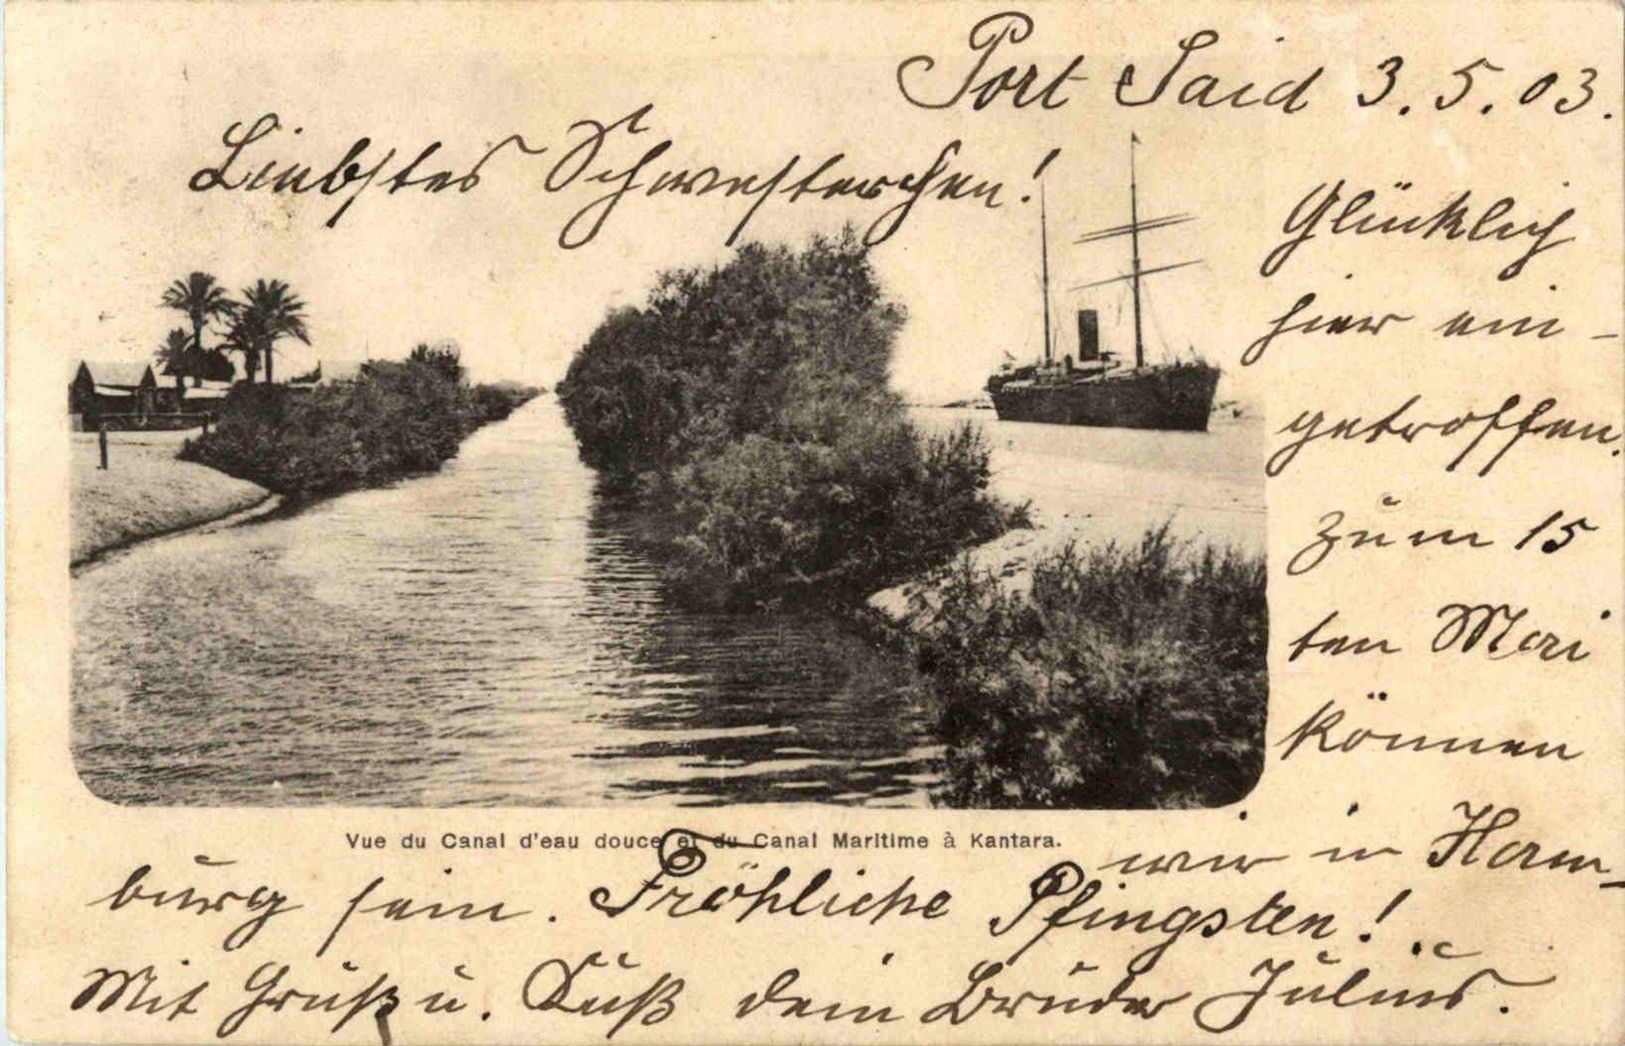 Port Said 3.5.03.
Liebstes Schwesterchen!
Glücklich
hier ein-
getroffen.
Zum 15
ten Mai
können
Vue du Canal d'eau douce et du Canal Maritime à Kantara.
wir in Ham-
burg sein. Fröhliche Pfingsten!
Mit Gruß u. Kuß dein Bruder Julius.